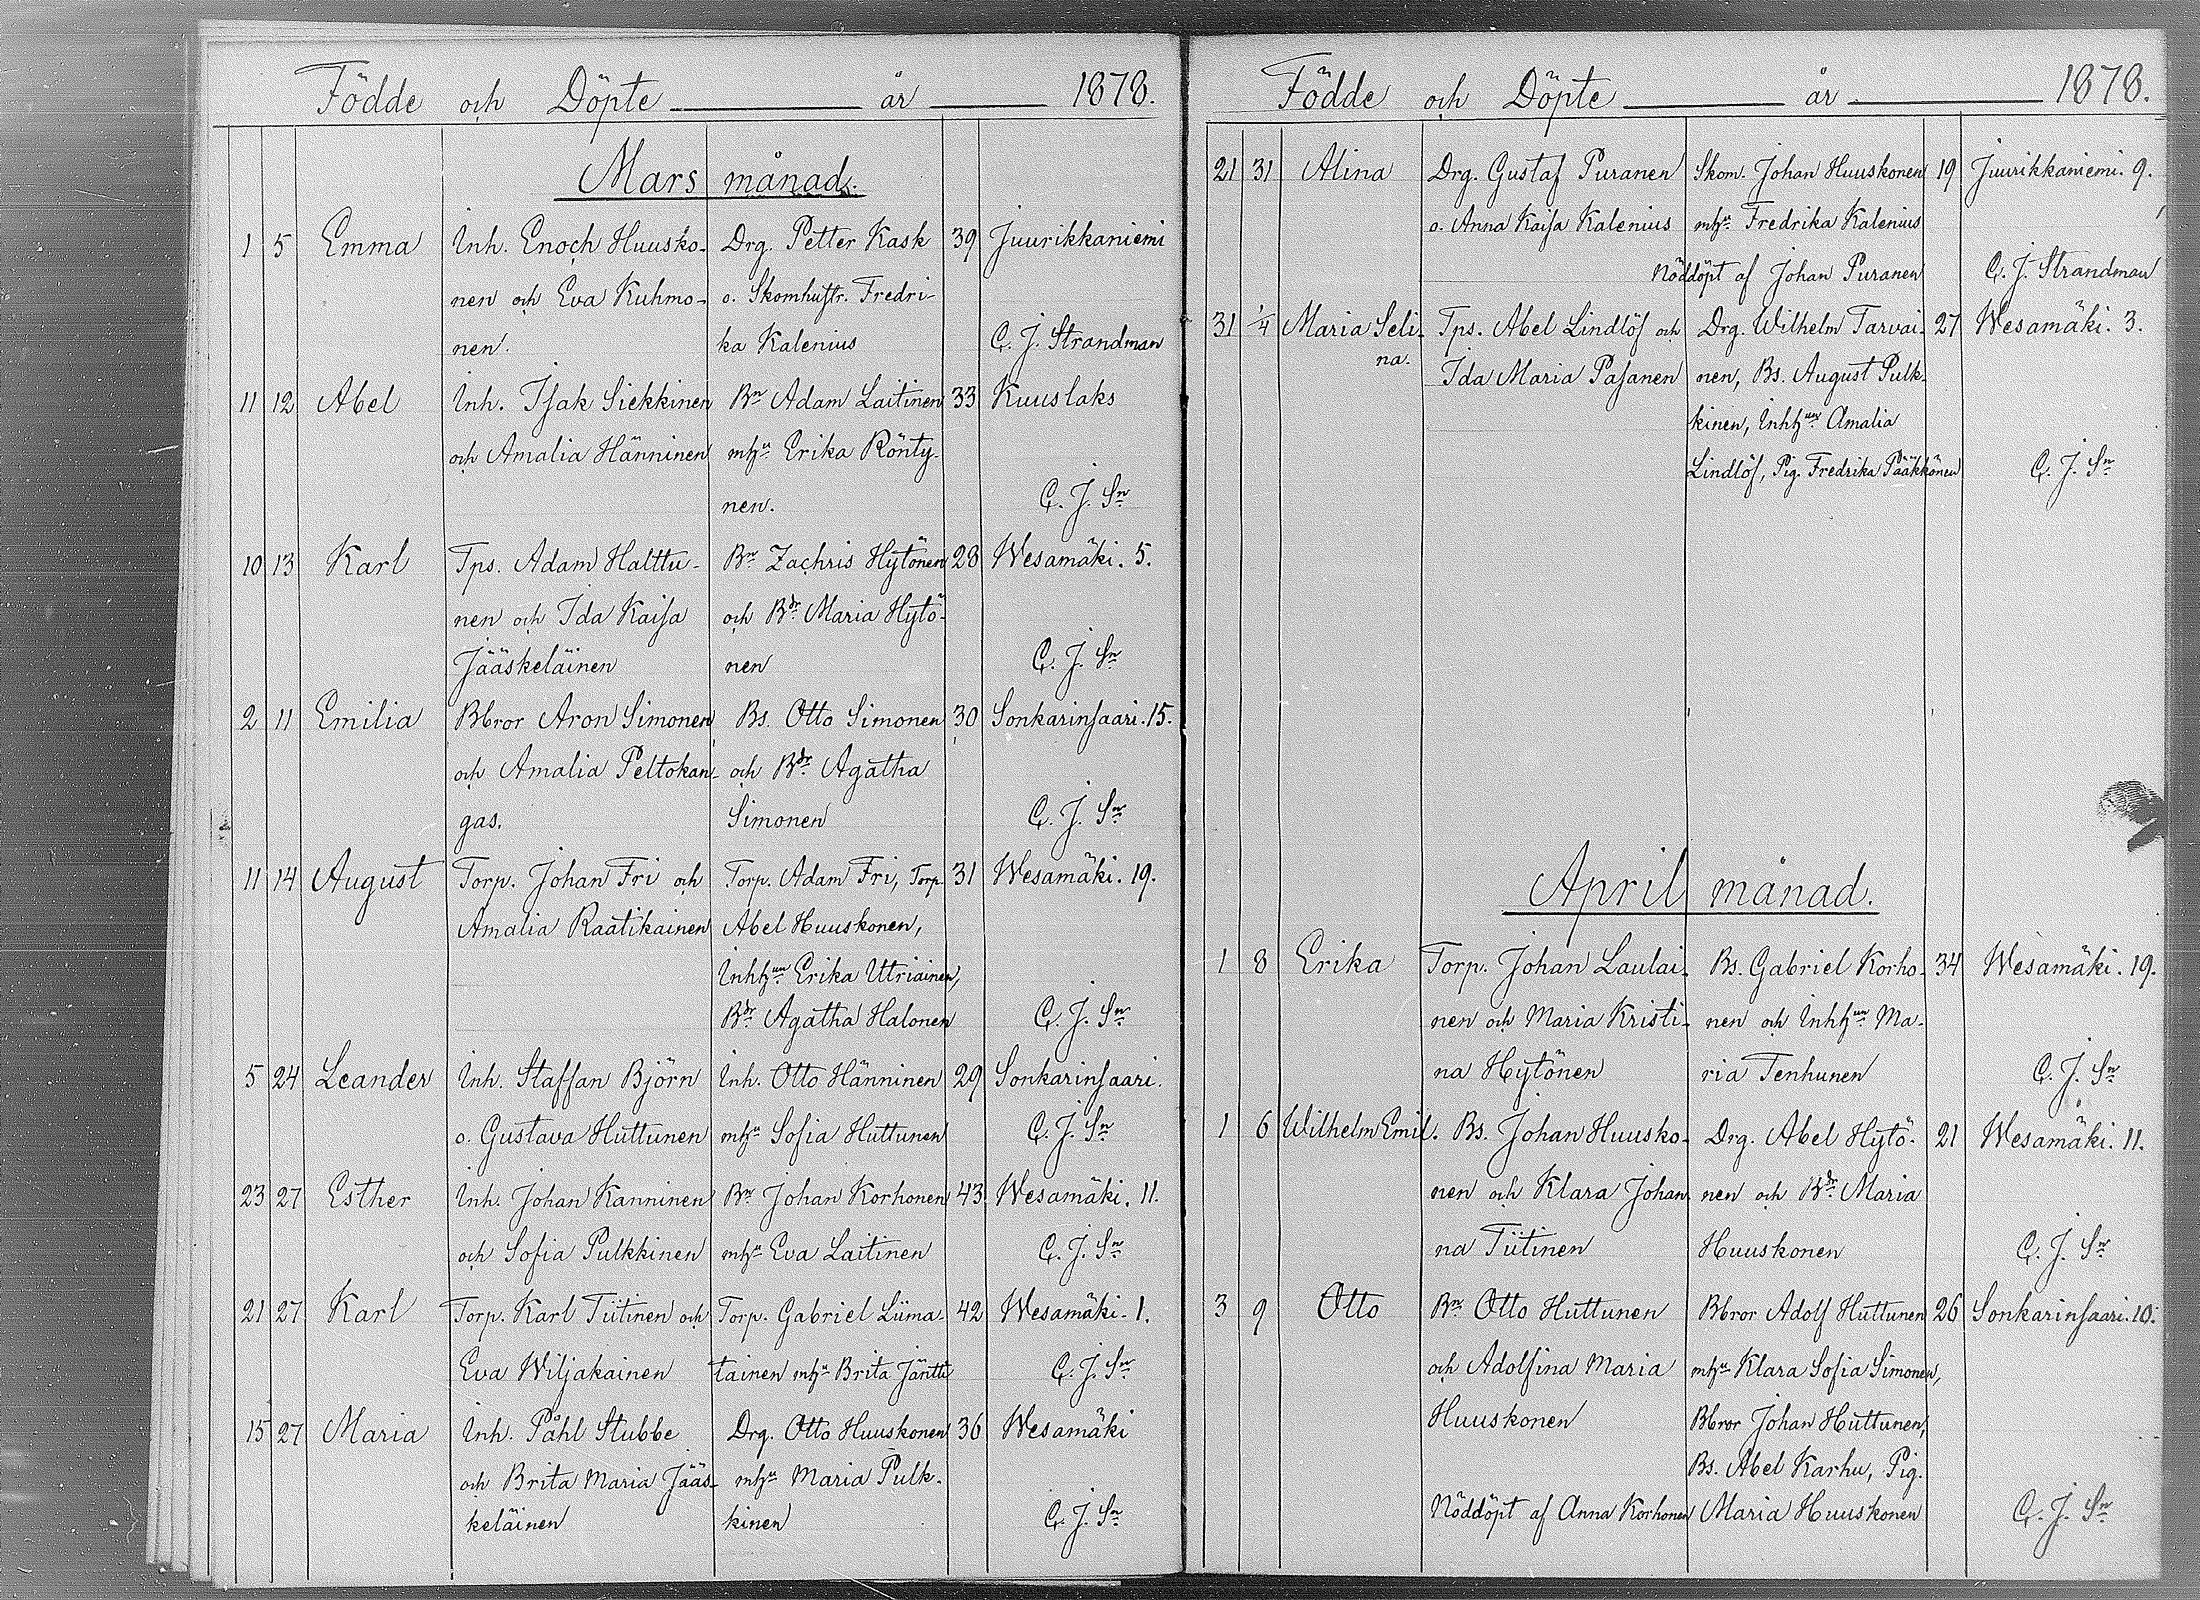 Födde och Döpte år 1878.
Mars månad.
1 5 Emma Inh. Enoch Huusko- Drg. Petter Kask 39 Juurikkaniemi
nen och Eva Kuhmo- o. Skomhustr. Fredri-
nen. ka Kalenius C. J. Strandman
11 12 Abel Inh. Isak Siekkinen Bn Adam Laitinen 33 Kuuslaks
och Amalia Hänninen mhu Erika Rönty-
nen. C. J. Sn
10 13 Karl Tps. Adam Halttu- Bn Zachris Hytönen 28 Wesamäki. 5.
nen och Ida Kaisa och Bdr Maria Hytö-
Jääskeläinen nen C. J. Sn
2 11 Emilia Bbror Aron Simonen Bs. Otto Simonen 30 Sonkarinsaari. 15.
och Amalia Peltokan- och Bdr Agatha
gas. Simonen C. J. Sn
11 14 August Torp. Johan Fri och Torp. Adam Fri, Torp. 31 Wesamäki. 19.
Amalia Raatikainen Abel Huuskonen,
Inhhun Erika Utriainen,
Bdr Agatha Halonen C. J. Sn
5 24 Leander Inh. Staffan Björn Inh. Otto Hänninen 29 Sonkarinsaari.
o. Gustava Huttunen mhu Sofia Huttunen C. J. Sn
23 27 Esther Inh. Johan Kanninen Bn Johan Korhonen 43 Wesamäki. 11.
och Sofia Pulkkinen mhu Eva Laitinen C. J. Sn
21 27 Karl Torp. Karl Tiitinen och Torp. Gabriel Liima- 42 Wesamäki. 1.
Eva Wiljakainen tainen mhu Brita Jäntti C. J. Sn
15 27 Maria Inh. Påhl Stubbe Drg. Otto Huuskonen 36 Wesamäki
och Brita Maria Jääs- mhu Maria Pulk-
keläinen kinen C. J. Sn
Födde och Döpte år 1878.
21 31 Alina Drg. Gustaf Puranen Skom. Johan Huuskonen 19 Juurikkaniemi. 9.
o. Anna Kaisa Kalenius mhu Fredrika Kalenius
Nöddöpt af Johan Puranen C. J. Strandman
31 1/4 Maria Seli- Tps. Abel Lindlöf och Drg. Wilhelm Tarvai- 27 Wesamäki. 3.
na. Ida Maria Pasanen nen, Bs. August Pulk-
kinen, Inhhun Amalia
Lindlöf, Pig. Fredrika Pääkkönen C. J. Sn
April månad.
1 8 Erika Torp. Johan Laulai- Bs. Gabriel Korho- 34 Wesamäki. 19.
nen och Maria Kristi- nen och Inhhun Ma-
na Hytönen ria Tenhunen C. J. Sn
1 6 Wilhelm Emil. Bs. Johan Huusko- Drg. Abel Hytö- 21 Wesamäki. 11.
nen och Klara Johan- nen och Bdr Maria
na Tiitinen Huuskonen C. J. Sn
3 9 Otto Bn Otto Huttunen Bbror Adolf Huttunen 26 Sonkarinsaari. 10.
och Adolfina Maria mhu Klara Sofia Simonen,
Huuskonen Bbror Johan Huttunen,
Bs. Abel Karhu, Pig.
Nöddöpt af Anna Korhonen Maria Huuskonen C. J. Sn